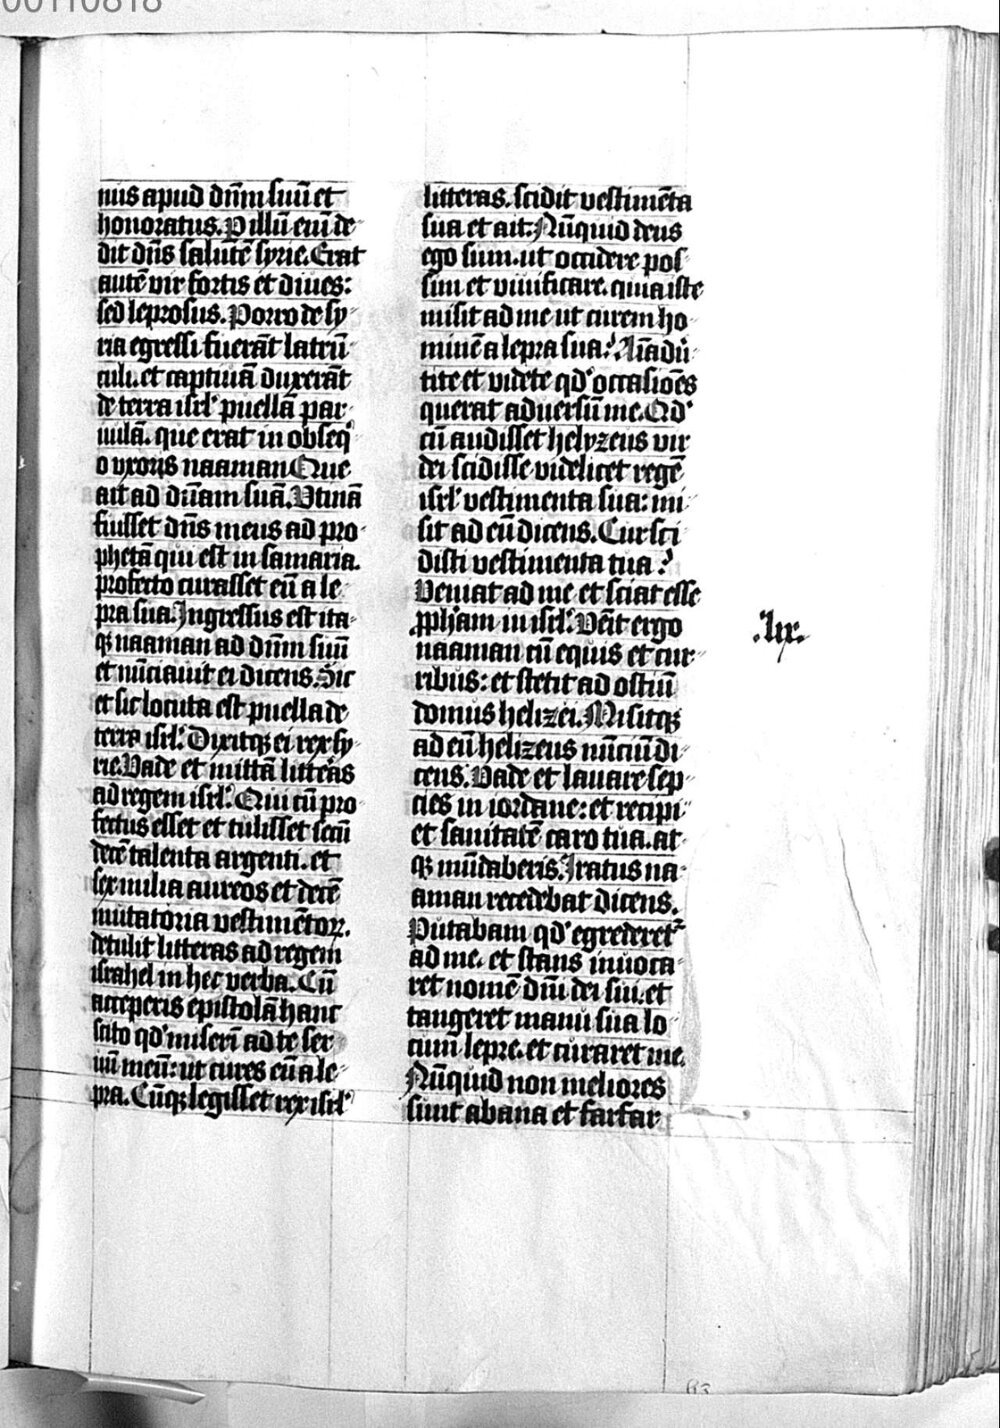 00110818
nus apud dn̄m suū et
honoratus. P illū eni̅ de-
dit dn̄s salutē syrie. Erat
autē vir fortis et diues:
sed leprosus. Porro de sy-
ria egressi fuerāt latrū-
culi. et captiuā duxerāt
de terra isrl' puellā par-
uulā. que erat in obseq'-
o vxoris naaman Que
ait ad dn̄am suā. Vtinā
fuisset dn̄s meus ad pro-
phetā qui est in samaria.
profecto curasset eū a le-
pra sua. Ingressus est ita-
qꝫ naaman ad dn̄m suū
et nūciauit ei dicens. Sic
et sic locuta est puella de
terra isrl'. Dixitqꝫ ei rex sy-
rie. Vade et mittā litteras
ad regem isrl'. Qui cū pro-
fectus esset et tulisset secū
decē talenta argenti. et
sex milia aureos et decē
mutatoria vestimētoꝝ.
detulit litteras ad regem
israhel in hec verba. Cū
acceperis epistolā hanc
scito qd' miserī ad te ser-
uū meū: ut cures eū a le-
pra. Cūqꝫ legisset rex isrl'
litteras. scidit vestimēta
sua et ait: Nūquid deus
ego sum. ut occidere pos-
sim et viuificare. quia iste
misit ad me ut curem ho-
minē a lepra sua? Aīadu̅-
tite et videte qd' occasiōes
querat aduersū me. Qd'
cū audisset helyzeus vir
dei scidisse videlicet regē
isrl' vestimenta sua: mi-
sit ad eū dicens. Cur sci-
disti vestimenta tua?
Veniat ad me et sciat esse
ꝓph̄am in isrl'. Vēit ergo
naaman cū equis et cur-
ribus: et stetit ad ostiū
domus helizei. Misitqꝫ
ad eū helizeus nūciū di-
cens. Vade et lauare sep-
cies in iordane: et recipi-
et sanitatē caro tua. at-
qꝫ mūdaberis. Iratus na-
aman recedebat dicens.
Putabam qd' egrederet̃
ad me. et stans inuoca-
ret nomē dn̄i dei sui. et
tangeret manu sua lo-
cum lepre. et curaret me.
Nūquid non meliores
sunt abana et farfar
.lix.
63